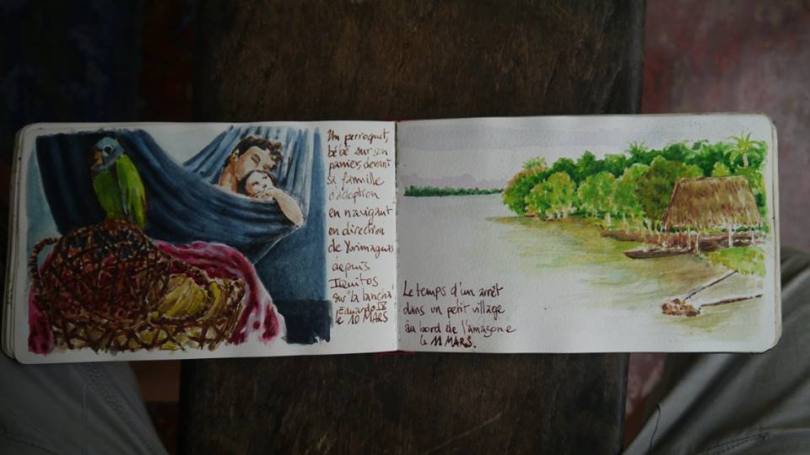 Un perroquet,
bébé sur son
panier, devant
sa famille
d'adoption
en navigant
en direction
de Yurimaguas
depuis
Iquitos
sur la lancha
Eduardo IX
le 10 MARS
Le temps d'un arrêt
dans un petit village
au bord de l'amazone
le 11 MARS.